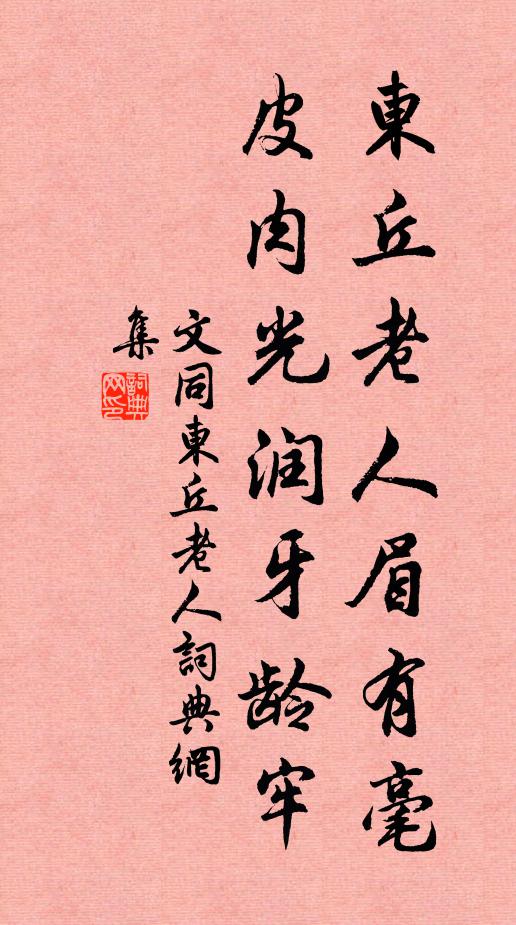 東丘老人眉有毫
皮肉光润牙龄牢
文同東丘老人詞典網
集
詞典网印